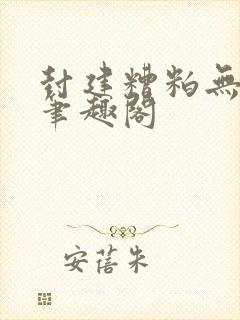 封建糟粕無
筆趣閣
安蓓朱